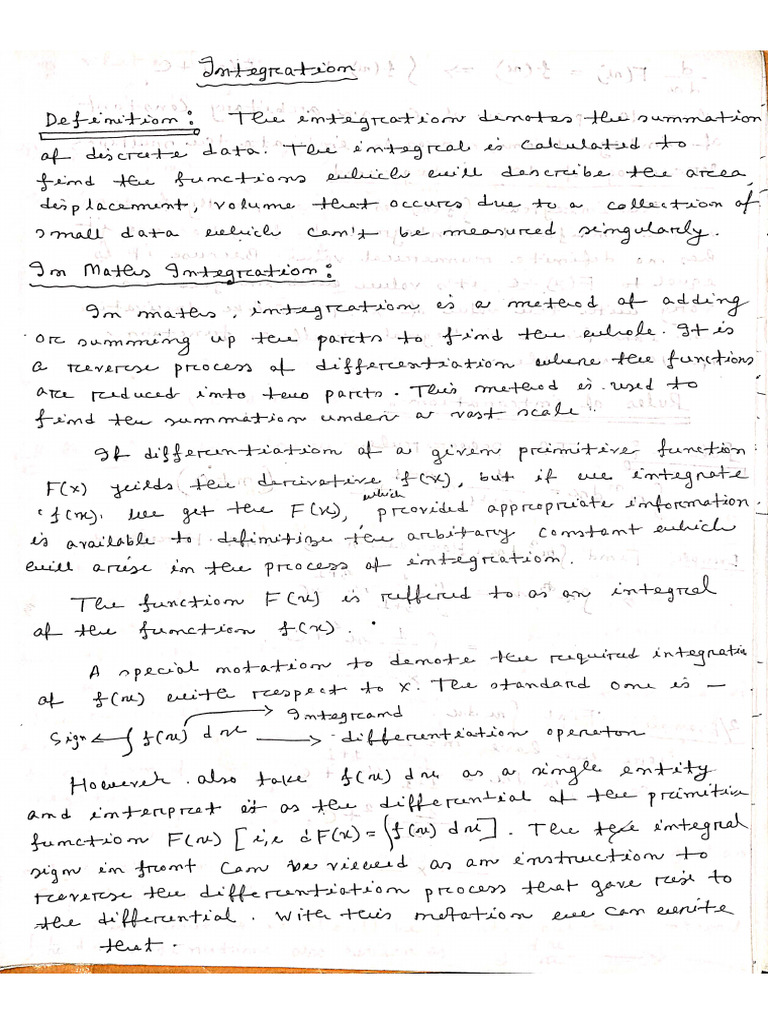 Integration
Definition: The integration denotes the summation
of discrete data. The integral is calculated to
find the functions which will describe the area,
displacement, volume that occurs due to a collection of
small data which can't be measured singularly.
In Maths Integration:
In maths, integration is a method of adding
or summing up the parts to find the whole. It is
a reverse process of differentiation where the functions
are reduced into two parts. This method is used to
find the summation under a vast scale.
If differentiation of a given primitive function
F(x) yeilds the derivative f(x), but if we integrate
f(x). we get the F(x), which provided appropriate information
is available to definitize the arbitary constant which
will arise in the process of integration.
The function F(x) is reffered to as an integral
of the function f(x).
A special notation to denote the required integratio
of f(x) with respect to x. The standard one is —
Integrand
Sign ← ∫ f(x) dx → differentiation operator
However also take f(x) dx as a single entity
and interpret it as the differential of the primitive
function F(x) [i,e dF(x) = ∫f(x) dx]. The integral
sign in front can be viewed as an instruction to
reverse the differentiation process that gave rise to
the differential. With this notation we can write
that.